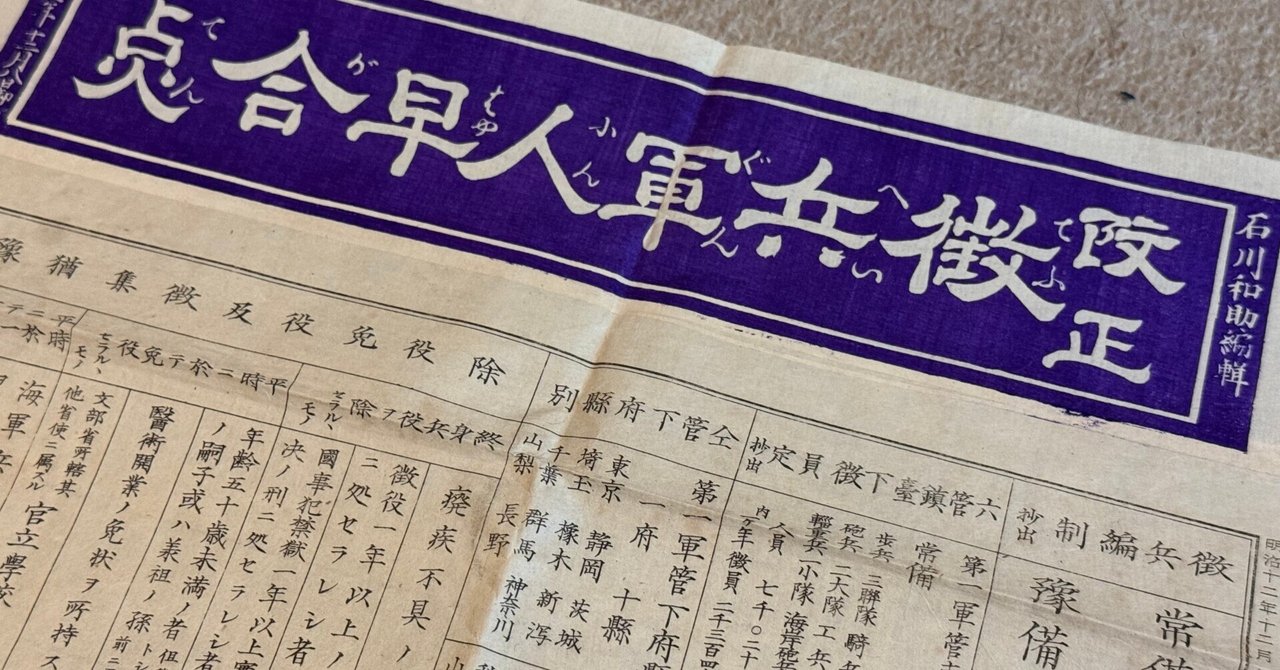 改正徴兵軍人早合点
てふへいぐんふんはやがてん
石川和助編輯
明治十二年十二月
徴兵編制
抄出
常
豫備
六管鎮臺下徴員定
抄出
第一軍管
常備
歩兵 三聯隊 騎
砲兵 二大隊 工兵
輜重兵一小隊 海岸砲
人員 七千〇二十
内一ケ年徴員 二千三百四
仝管下府縣別
第一軍管下府縣
一府 十縣
東京 静岡 茨城
埼玉 橡木 新潟
千葉 群馬 神奈川
山梨 長野
除役免役及徴集猶豫
終身兵役ヲ除
セラルヽモノ
廢疾不具ノ
徴役一年以上ノ
ニ処セラレシ者
國事犯禁獄一年以上實
決ノ刑ニ処セラレシ者
平時ニ於テ免役
セラルヽモノ
年齢五十歳未満ノ者
ノ嗣子或ハ義祖ノ孫
醫術開業ノ免状ヲ所持ス
文部省所轄其
他省使ニ属スル官立學校
平時ニ於テ一
海軍